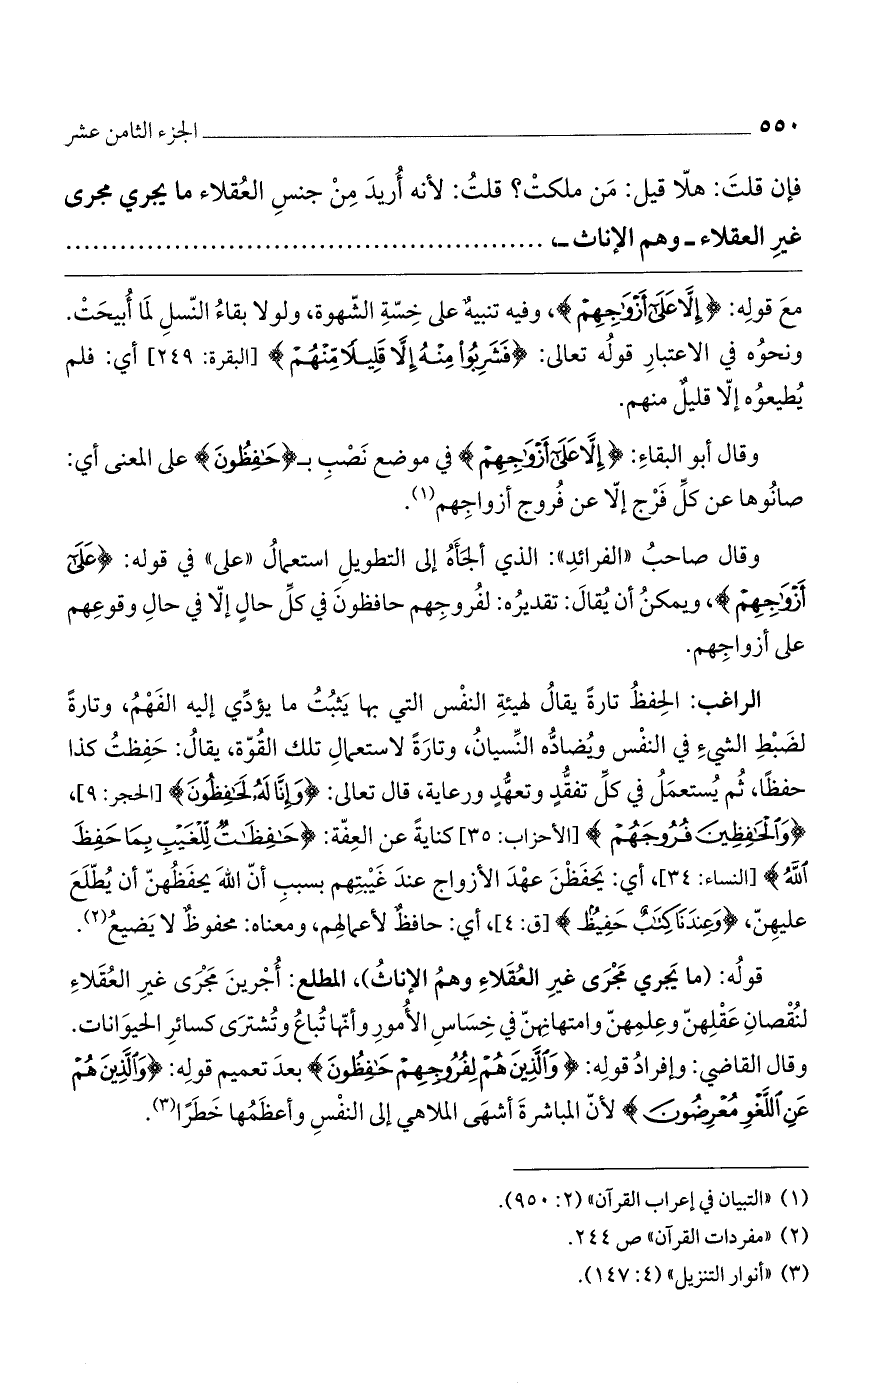 ٥٥٠ الجزء الثامن عشر
فإن قلتَ: هلّا قيل: مَن ملكتْ؟ قلتُ: لأنه أُريدَ مِنْ جنسِ العُقلاء ما يجري مجرى
غيرِ العقلاء ـ وهم الإناث ـ، ..................................................
معَ قولِه: ﴿إِلَّا عَلَىٰٓ أَزْوَٰجِهِمْ﴾، وفيه تنبيهٌ على خِسّةِ الشّهوة، ولولا بقاءُ النّسلِ لَمَا أُبيحَتْ.
ونحوُه في الاعتبارِ قولُه تعالى: ﴿فَشَرِبُوا۟ مِنْهُ إِلَّا قَلِيلًا مِّنْهُمْ﴾ [البقرة: ٢٤٩] أي: فلم
يُطيعوُه إلّا قليلٌ منهم.
وقال أبو البقاءِ: ﴿إِلَّا عَلَىٰٓ أَزْوَٰجِهِمْ﴾ في موضع نَصْبِ بـ﴿حَٰفِظُونَ﴾ على المعنى أي:
صانُوها عن كلِّ فَرْج إلّا عن فُروج أزواجِهم(١).
وقال صاحبُ «الفرائدِ»: الذي ألجَأَهُ إلى التطويلِ استعمالُ «على» في قوله: ﴿عَلَىٰٓ
أَزْوَٰجِهِمْ﴾، ويمكنُ أن يُقالَ: تقديرُه: لفُروجِهم حافظونَ في كلِّ حالٍ إلّا في حالِ وقوعِهم
على أزواجِهم.
الراغب: الحِفظُ تارةً يقالُ لهيئةِ النفْس التي بها يَثبُتُ ما يؤدِّي إليه الفَهْمُ، وتارةً
لضَبْطِ الشيءِ في النفْس ويُضادُّه النِّسيانُ، وتارَةً لاستعمالِ تلك القُوّة، يقالُ: حَفِظتُ كذا
حفظًا، ثُم يُستعمَلُ في كلِّ تفقُّدٍ وتعهُّدٍ ورعاية، قال تعالى: ﴿وَإِنَّا لَهُۥ لَحَٰفِظُونَ﴾ [الحجر: ٩]،
﴿وَٱلْحَٰفِظِينَ فُرُوجَهُمْ﴾ [الأحزاب: ٣٥] كنايةً عن العِفّة: ﴿حَٰفِظَٰتٌ لِّلْغَيْبِ بِمَا حَفِظَ
ٱللَّهُ﴾ [النساء: ٣٤]، أي: يَحفَظْنَ عهْدَ الأزواج عندَ غَيْبتِهم بسببِ أنّ اللهَ يحفَظُهنّ أن يُطّلَعَ
عليهِنّ، ﴿وَعِندَنَا كِتَٰبٌ حَفِيظٌ﴾ [ق: ٤]، أي: حافظٌ لأعمالِهم، ومعناه: محفوظٌ لا يَضيعُ(٢).
قولُه: (ما يَجري مَجْرَى غيرِ العُقَلاءِ وهمُ الإناثُ)، المطلع: أُجْرِينَ مَجْرَى غيرِ العُقَلاءِ
لنُقْصانِ عَقْلِهنّ وعِلمِهنّ وامتهانِهنّ في خِسَاسِ الأُمورِ وأنّها تُباعُ وتُشترَى كسائرِ الحيوَانات.
وقال القاضي: وإفرادُ قولِه: ﴿وَٱلَّذِينَ هُمْ لِفُرُوجِهِمْ حَٰفِظُونَ﴾ بعدَ تعميم قولِه: ﴿وَٱلَّذِينَ هُمْ
عَنِ ٱللَّغْوِ مُعْرِضُونَ﴾ لأنّ المباشرةَ أشهَى الملاهي إلى النفْسِ وأعظَمُها خَطَرًا(٣).
(١) «التبيان في إعراب القرآن» (٢: ٩٥٠).
(٢) «مفردات القرآن» ص ٢٤٤.
(٣) «أنوار التنزيل» (٤: ١٤٧).